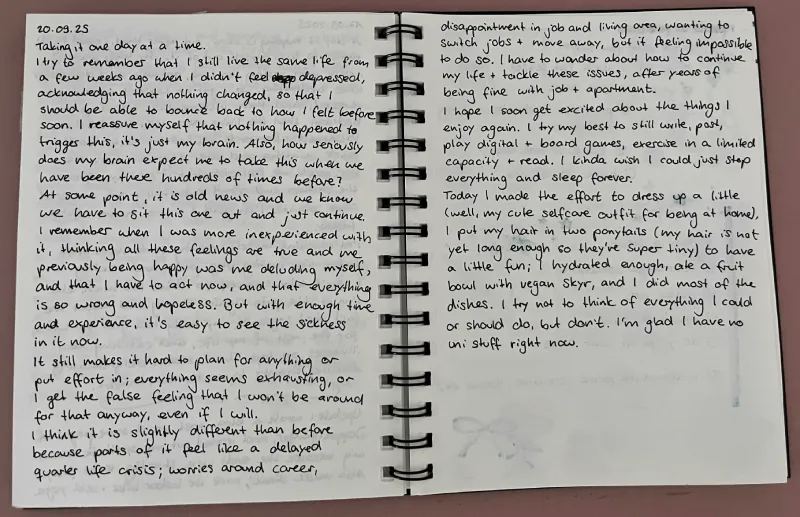 20.09.25
Taking it one day at a time.
I try to remember that I still live the same life from
a few weeks ago when I didn't feel depressed,
acknowledging that nothing changed, so that I
should be able to bounce back to how I felt before
soon. I reassure myself that nothing happened to
trigger this, it's just my brain. Also, how seriously
does my brain expect me to take this when we
have been there hundreds of times before?
At some point, it is old news and we know
we have to sit this one out and just continue.
I remember when I was more inexperienced with
it, thinking all these feelings are true and me
previously being happy was me deluding myself,
and that I have to act now, and that everything
is so wrong and hopeless. But with enough time
and experience, it's easy to see the sickness
in it now.
It still makes it hard to plan for anything or
put effort in; everything seems exhausting, or
I get the false feeling that I won't be around
for that anyway, even if I will.
I think it is slightly different than before
because parts of it feel like a delayed
quarter life crisis; worries around career,
disappointment in job and living area, wanting to
switch jobs + move away, but it feeling impossible
to do so. I have to wonder about how to continue
my life + tackle these issues, after years of
being fine with job + apartment.
I hope I soon get excited about the things I
enjoy again. I try my best to still write, post,
play digital + board games, exercise in a limited
capacity + read. I kinda wish I could just stop
everything and sleep forever.
Today I made the effort to dress up a little
(well, my cute selfcare outfit for being at home),
I put my hair in two ponytails (my hair is not
yet long enough so they're super tiny) to have
a little fun; I hydrated enough, ate a fruit
bowl with vegan Skyr, and I did most of the
dishes. I try not to think of everything I could
or should do, but don't. I'm glad I have no
uni stuff right now.